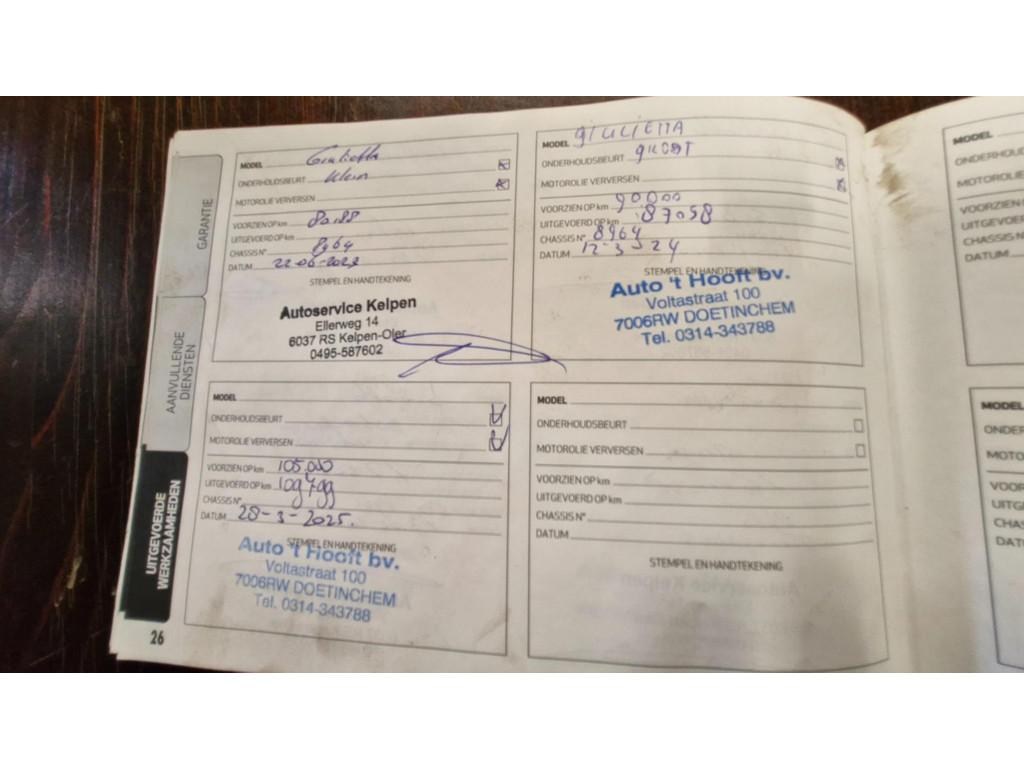 GARANTIE
AANVULLENDE
DIENSTEN
UITGEVOERDE
WERKZAAMHEDEN
26
MODEL Giulietta
ONDERHOUDSBEURT Klein
MOTOROLIE VERVERSEN
VOORZIEN OP km
UITGEVOERD OP km 80188
CHASSIS N° 8964
DATUM 22-06-2022
STEMPEL EN HANDTEKENING
Autoservice Kelpen
Ellerweg 14
6037 RS Kelpen-Oler
0495-587602
MODEL GIULIETTA
ONDERHOUDSBEURT GROOT
MOTOROLIE VERVERSEN
VOORZIEN OP km 90000
UITGEVOERD OP km 87058
CHASSIS N° 8964
DATUM 12-3-24
STEMPEL EN HANDTEKENING
Auto 't Hooft bv.
Voltastraat 100
7006RW DOETINCHEM
Tel. 0314-343788
MODEL
ONDERHOUDSBEURT
MOTOROLIE VERVERSEN
VOORZIEN OP km 105.000
UITGEVOERD OP km 109799
CHASSIS N°
DATUM 28-3-2025.
STEMPEL EN HANDTEKENING
Auto 't Hooft bv.
Voltastraat 100
7006RW DOETINCHEM
Tel. 0314-343788
MODEL
ONDERHOUDSBEURT
MOTOROLIE VERVERSEN
VOORZIEN OP km
UITGEVOERD OP km
CHASSIS N°
DATUM
STEMPEL EN HANDTEKENING
MODEL
ONDERHOUDSBEU
MOTOROLIE VE
VOORZIEN O
UITGEVOER
CHASSIS N
DATUM
MODEL
ONDER
MOTO
VOOR
UITG
CHAS
DAT